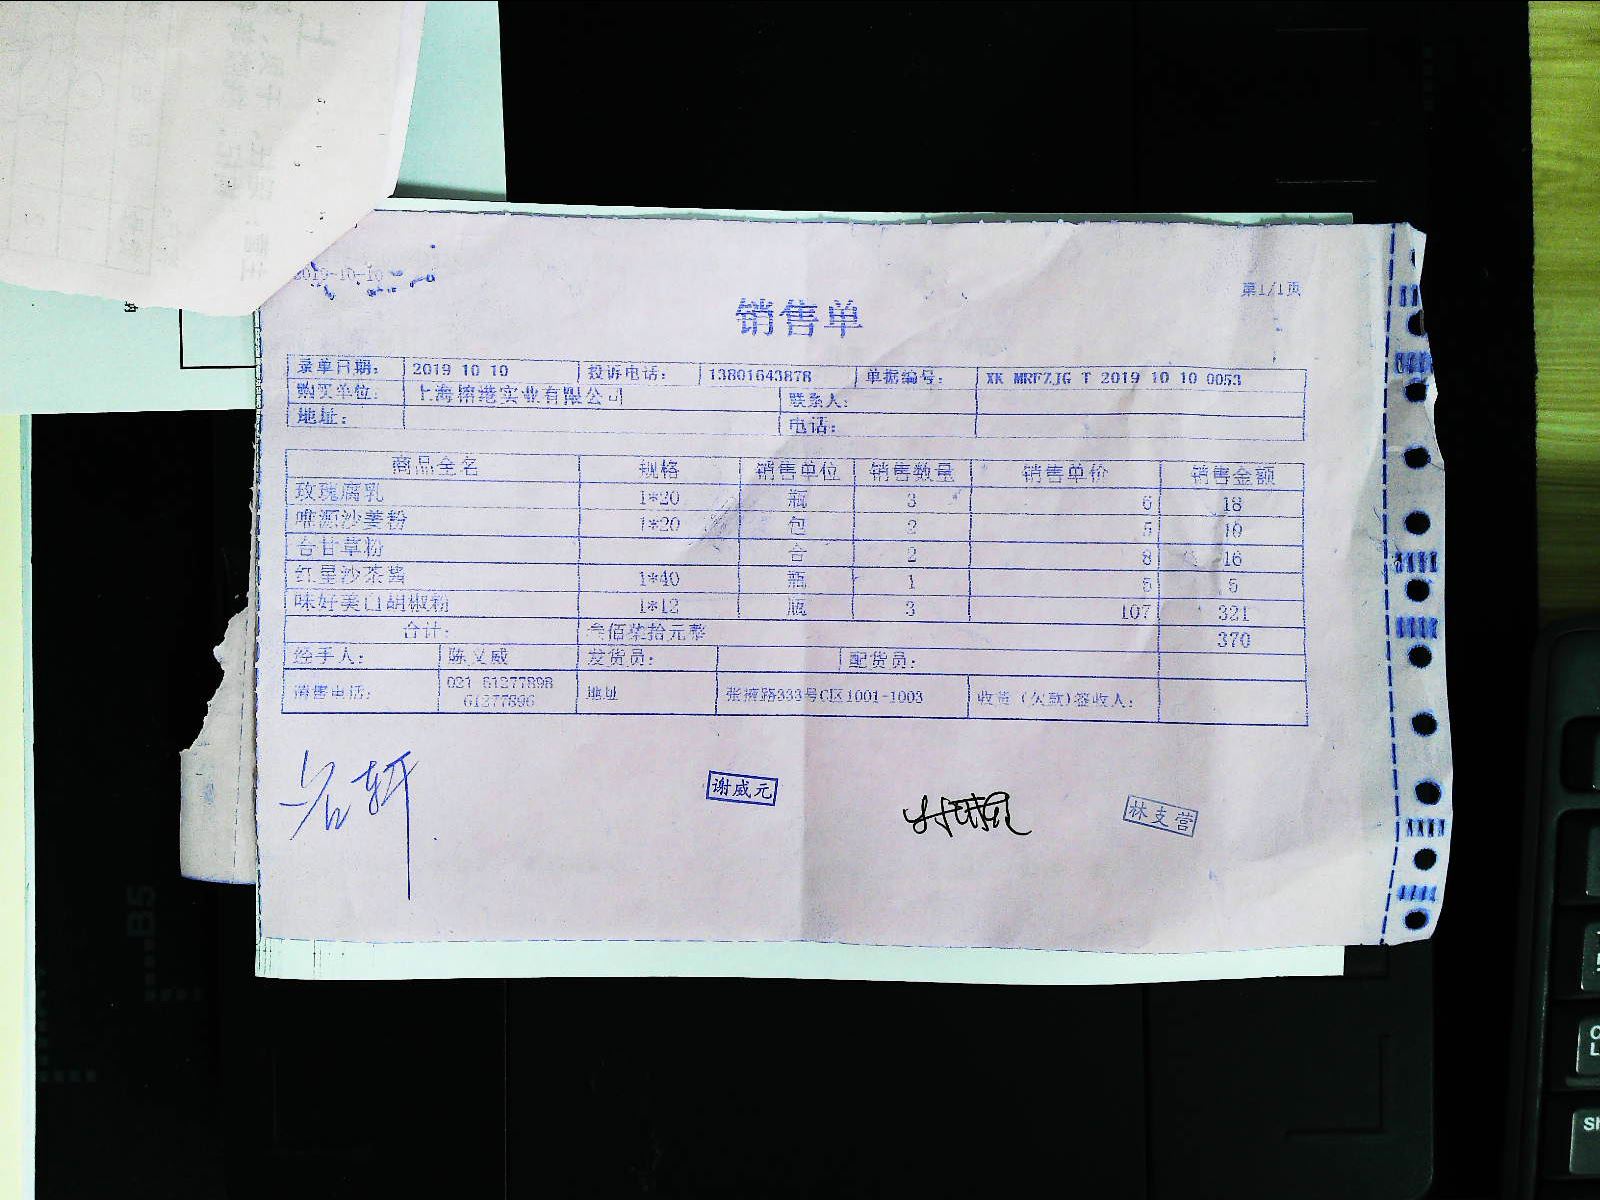 2019-10-10
第1/1页
销售单
录单日期: 2019 10 10 投诉电话: 13801643878 单据编号: XK MRFZJG T 2019 10 10 0053
购买单位: 上海锦港实业有限公司 联系人:
地址: 电话:
商品全名 规格 销售单位 销售数量 销售单价 销售金额
玫瑰腐乳 1*20 瓶 3 6 18
唯源沙姜粉 1*20 包 2 5 10
合甘草粉 合 2 8 16
红星沙茶酱 1*40 瓶 1 5 5
味好美白胡椒粉 1*12 瓶 3 107 321
合计: 叁佰柒拾元整 370
经手人: 陈义威 发货员: 配货员:
销售电话: 021 61277898 61277896 地址 张掖路333号C区1001-1003 收货(欠款)签收人:
谢威元
林支营
B5